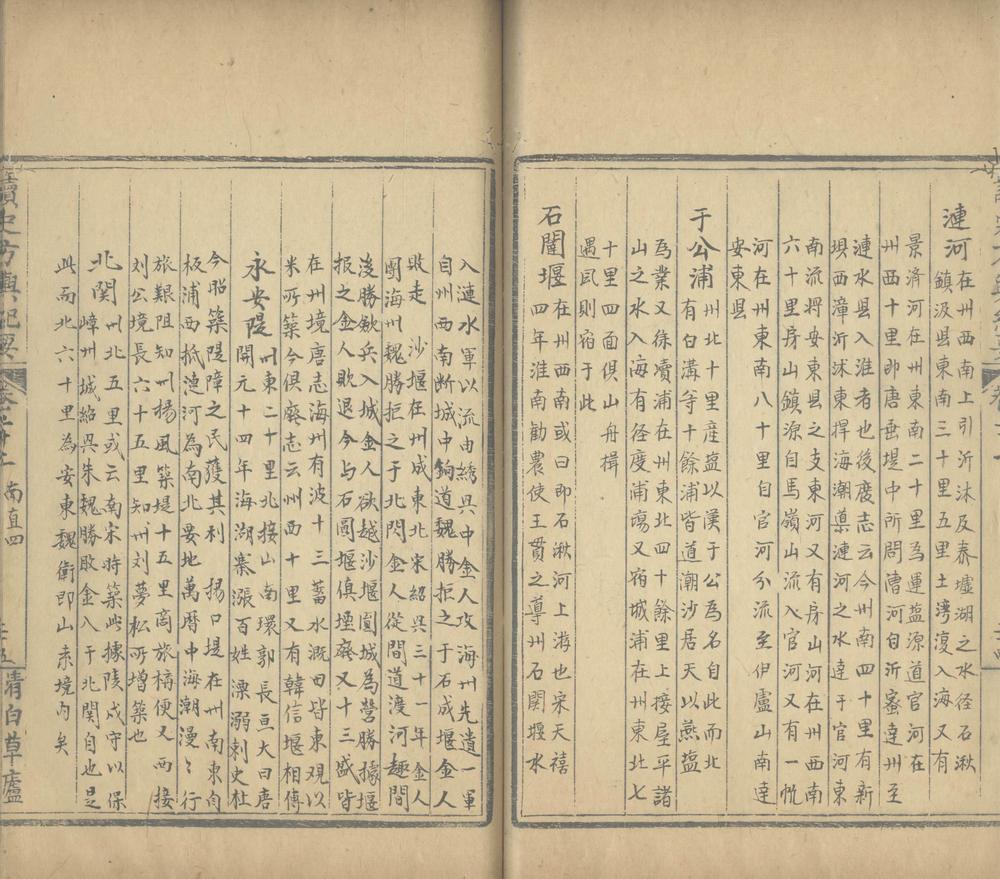 漣河在州西南上引沂沭及桑墟湖之水径石湫
鎮汲县東南三十里五里土湾湲入海又有
景济河在州東南二十里為運盐源道官河在
州西十里即唐垂堤中所開漕河自沂密達州至
漣水县入淮者也後廢志云今州南四十里有新
垻西漳沂沭東捍海潮導漣河之水達于官河東
南流將安東县之支東河又有身山河在州西南
六十里身山鎮源自馬嶺山流入官河又有一帆
河在州東南八十里自官河分流至伊盧山南達
安東县
于公浦州北十里産盐以漢于公為名自此而北
有白溝等十餘浦皆道潮沙居天以燕盐
為業又徐瀆浦在州東北四十餘里上接屋平諸
山之水入海有径度浦焉又宿城浦在州東北七
十里四面俱山舟楫
遇风則宿于此
石闥堰在州西南或曰即石湫河上游也宋天禧
四年淮南勸農使王贯之導州石闥堰水
入漣水軍以流由綉具中金人攻海州先遣一軍
自州西南断城中餉道魏勝拒之于石成堰金人
敗走 沙堰在州成東北宋紹兵三十一年金人
圍海州魏勝拒之于北閃金人從間道渡河趣間
淩勝歛兵入城金人欲越沙堰圍城為營勝據堰
报之金人敗退今与石圓堰俱堙廢又十三盛皆
在州境唐志海州有波十三蓄水溉田皆東观以
米所築今俱廢志云州西十里又有韓信堰相傳
永安隄州東二十里北接山南環郭長亘大曰唐
開元十四年海湖寨漲百姓漂溺刺史杜
今昭築隄障之民蒦其利 揚口堤在州南東向
板浦西抵漣河為南北要地萬曆中海潮漫〻行
旅艱阻知州楊風築堤十五里商旅稱便又西接
刘公境長六十五里知州刘夢松所增築也
北関州北五里或云南宋時築此據陵戍守以保
嶂州城紹兵朱魏勝敗金入于北関自也是
此而北六十里為安東魏衛即山东境内矣
讀史方輿紀要
南直四
清白草廬